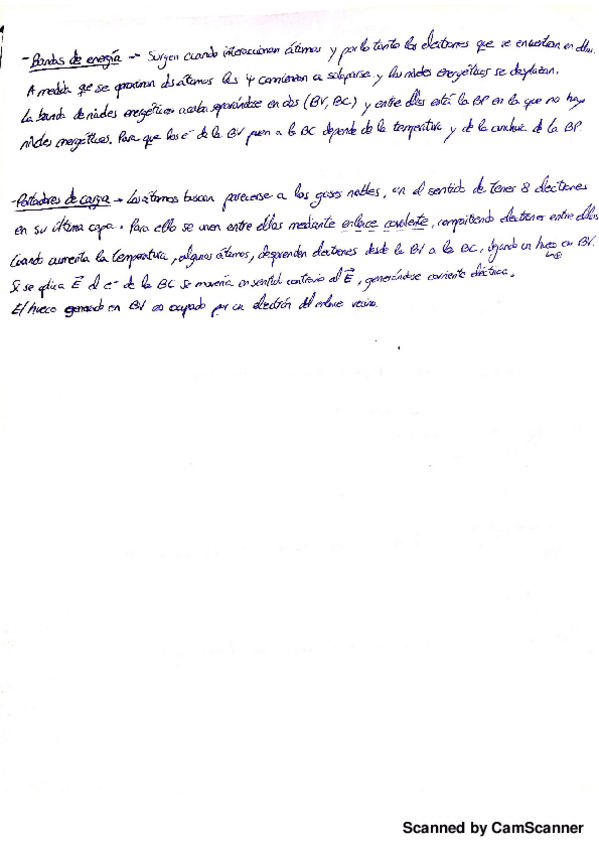 - Bandas de energía → Surgen cuando interaccionan átomos y por lo tanto los electrones que se encuentran en ellos.
A medida que se aproximan dos átomos las ψ comienzan a solaparse y los niveles energéticos se desplazan.
La banda de niveles energéticos acaba separándose en dos (BV, BC) y entre ellas está la BP en la que no hay
niveles energéticos. Para que los e⁻ de la BV pasen a la BC depende de la temperatura y de la anchura de la BP.
- Portadores de carga → Los átomos buscan parecerse a los gases nobles, en el sentido de tener 8 electrones
en su última capa. Para ello se unen entre ellos mediante enlace covalente, compartiendo electrones entre ellos.
Cuando aumenta la temperatura, algunos átomos, desprenden electrones desde la BV a la BC, dejando un hueco en BV.
Si se aplica E⃗ el e⁻ de la BC se movería en sentido contrario al E⃗, generándose corriente eléctrica.
El hueco generado en BV es ocupado por un electrón del enlace vecino.
Scanned by CamScanner